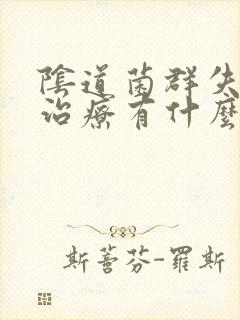 陰道菌群失
治療有什麼
斯蕾芬-羅斯